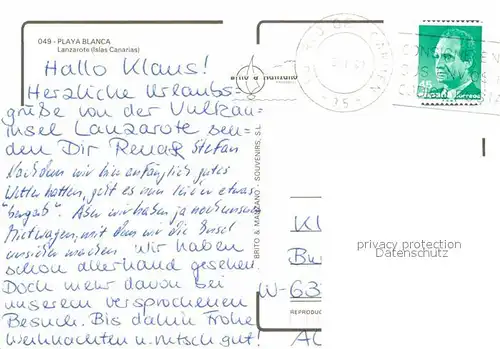 049 - PLAYA BLANCA
Lanzarote (Islas Canarias)
Hallo Klaus!
Herzliche Urlaubs-
grüße von der Vulkan-
insel Lanzarote sen-
den Dir Renate Stefan
Nachdem wir hier anfänglich gutes
Wetter hatten, geht es nun leider etwas
"bergab". Aber wir haben ja noch unseren
Mietwagen, mit dem wir die Insel
unsicher machen. Wir haben
schon allerhand gesehen.
Doch mehr davon bei
unserem versprochenen
Besuch. Bis dahin Frohe
Weihnachten u. rutsch gut!
BRITO & MANZANO - SOUVENIRS, S.L.
brito & manzano
Correos
Kl
privacy protection
Datenschutz
W-63
REPRODUC